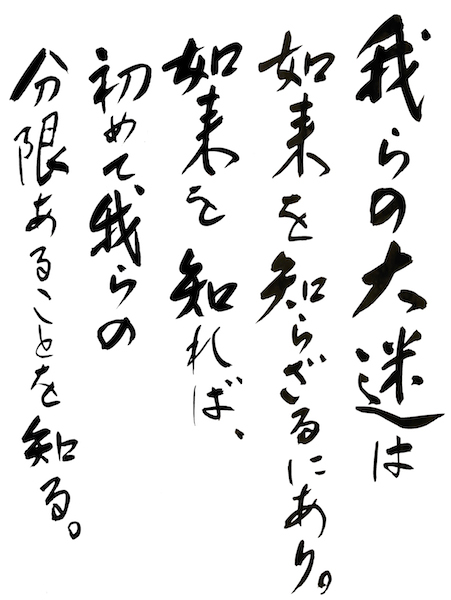 我らの大迷は
如来を知らざるにあり。
如来を知れば、
初めて我らの
分限あることを知る。